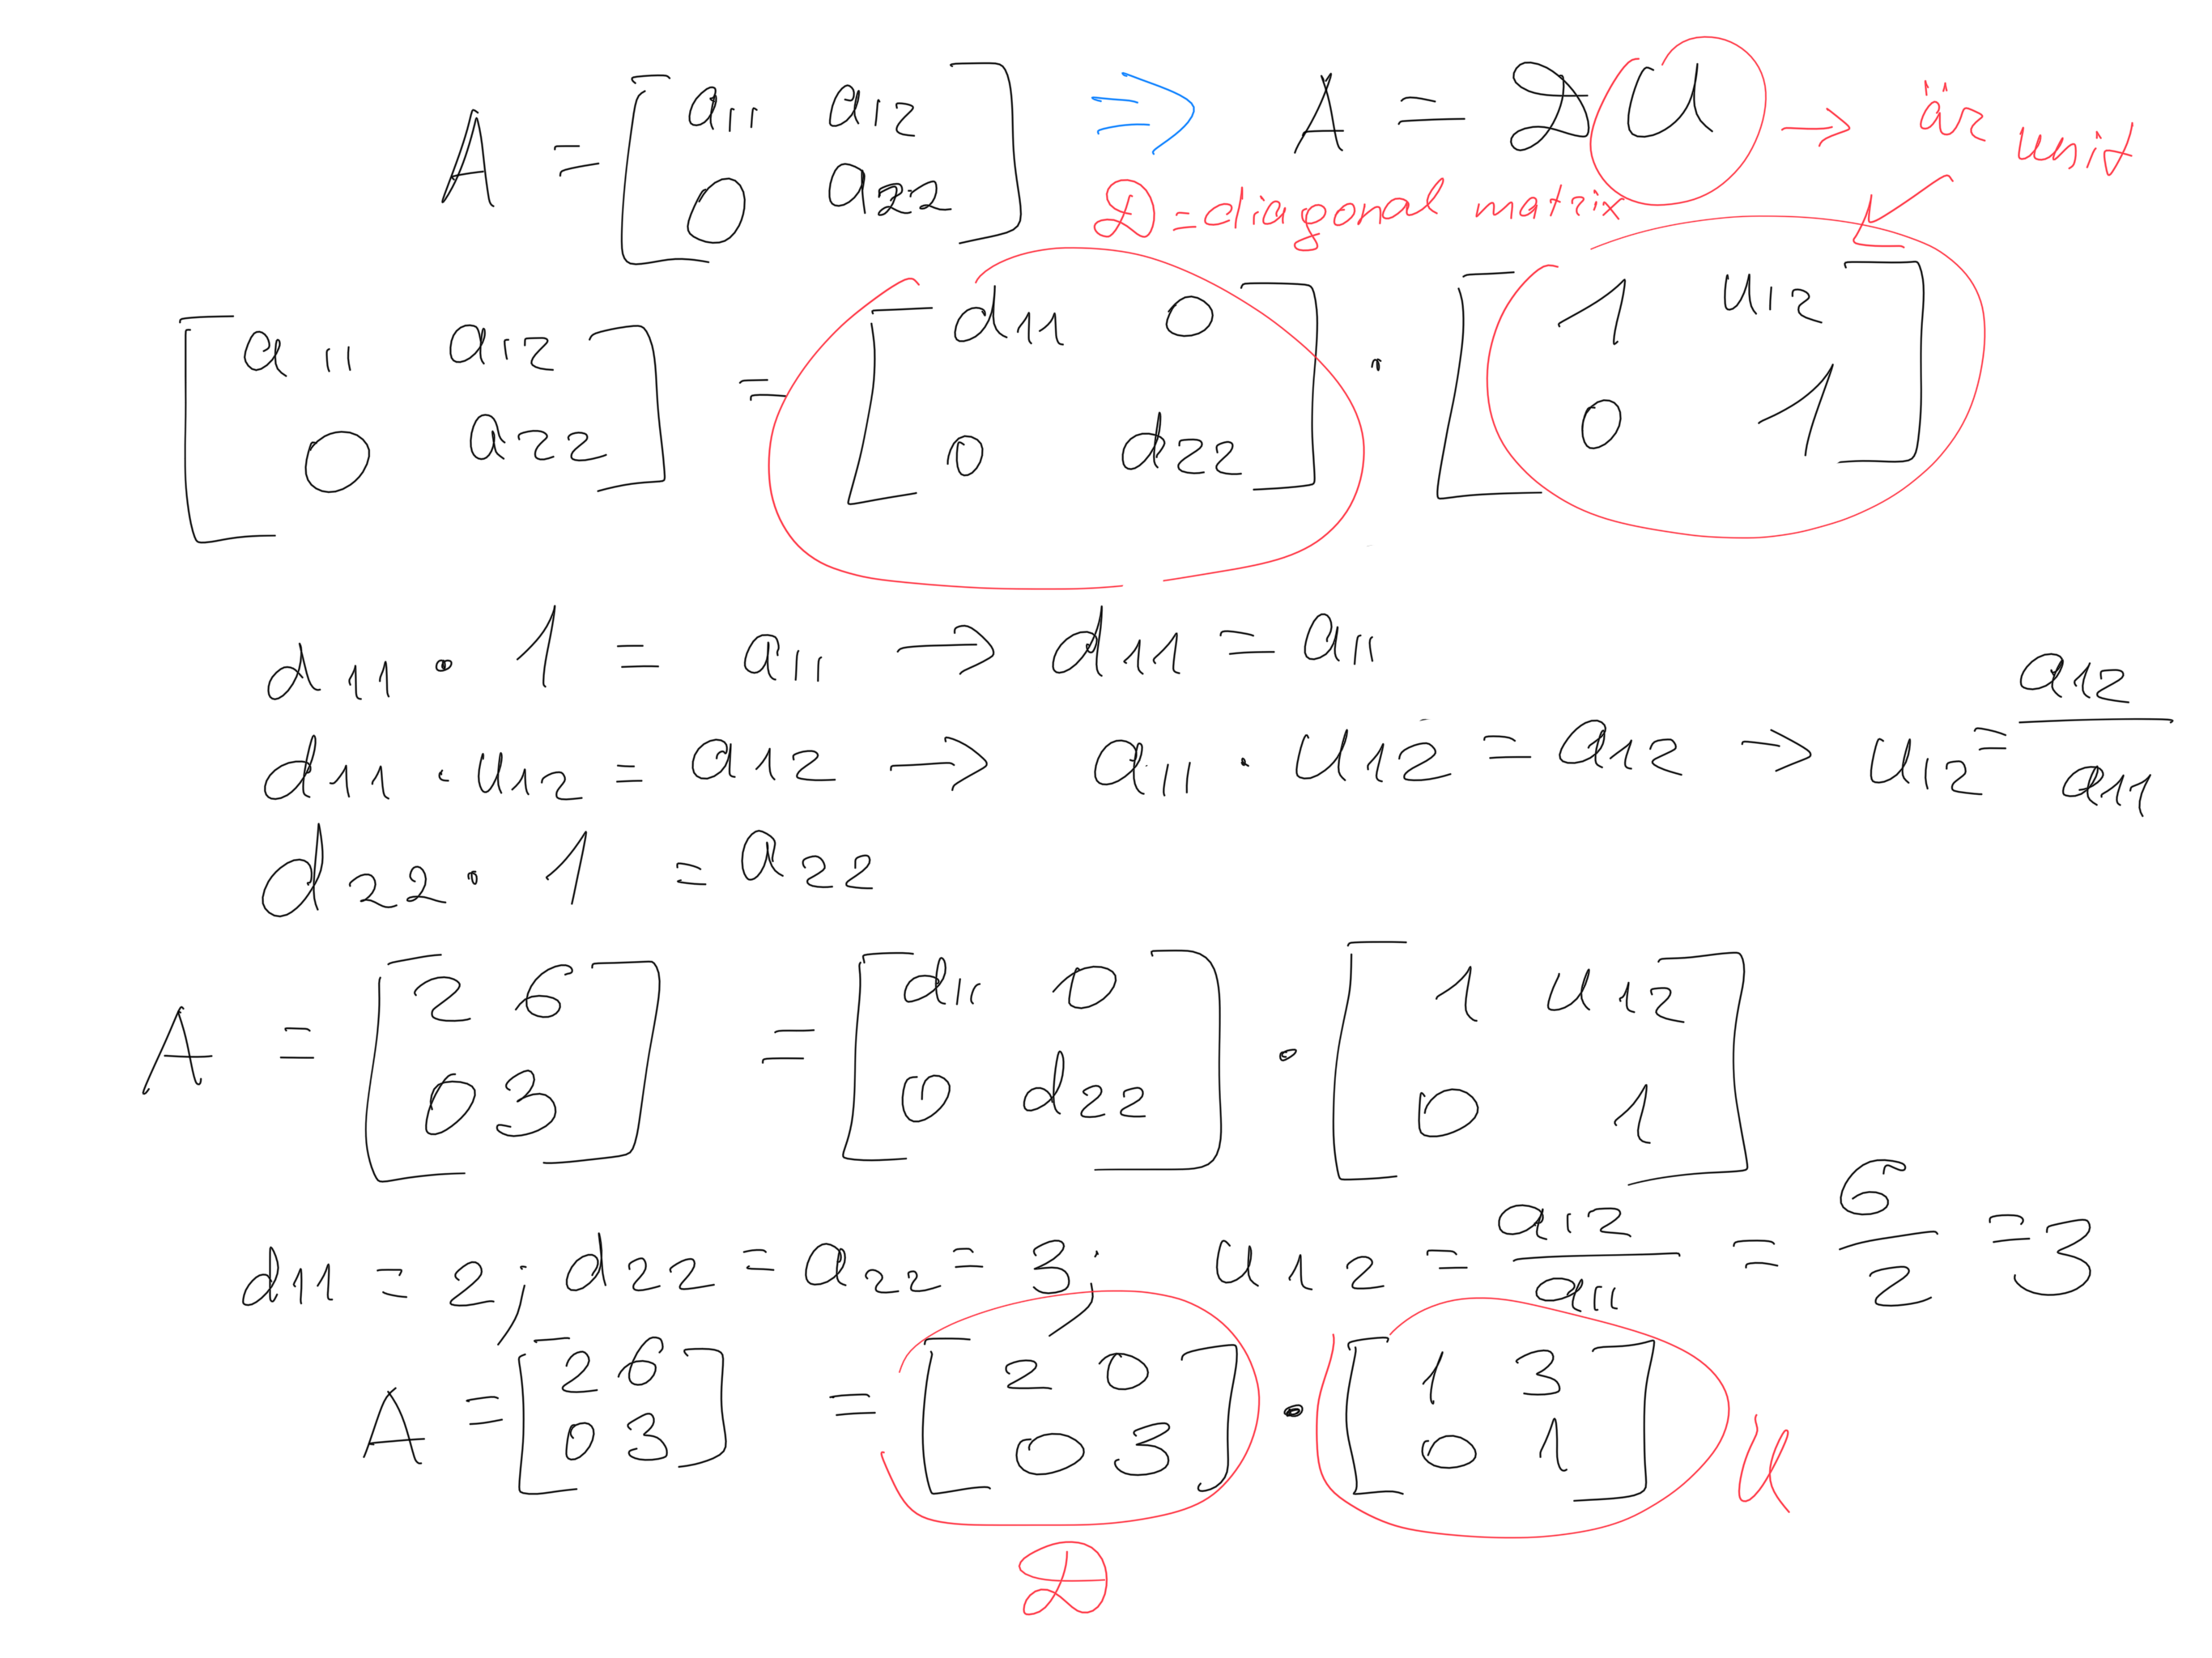 A = [a11 a12 0 a22] ⇒ A = DU → är unit
D = diagonal matrix
[a11 a12 0 a22] = [d11 0 0 d22] · [1 u12 0 1]
d11 · 1 = a11 → d11 = a11
d11 · u12 = a12 → a11 · u12 = a12 → u12 = a12/a11
d22 · 1 = a22
A = [2 6 0 3] = [d11 0 0 d22] · [1 u12 0 1]
d11 = 2; d22 = a22 = 3; u12 = a12/a11 = 6/2 = 3
A = [2 6 0 3] = [2 0 0 3] · [1 3 0 1] U
D